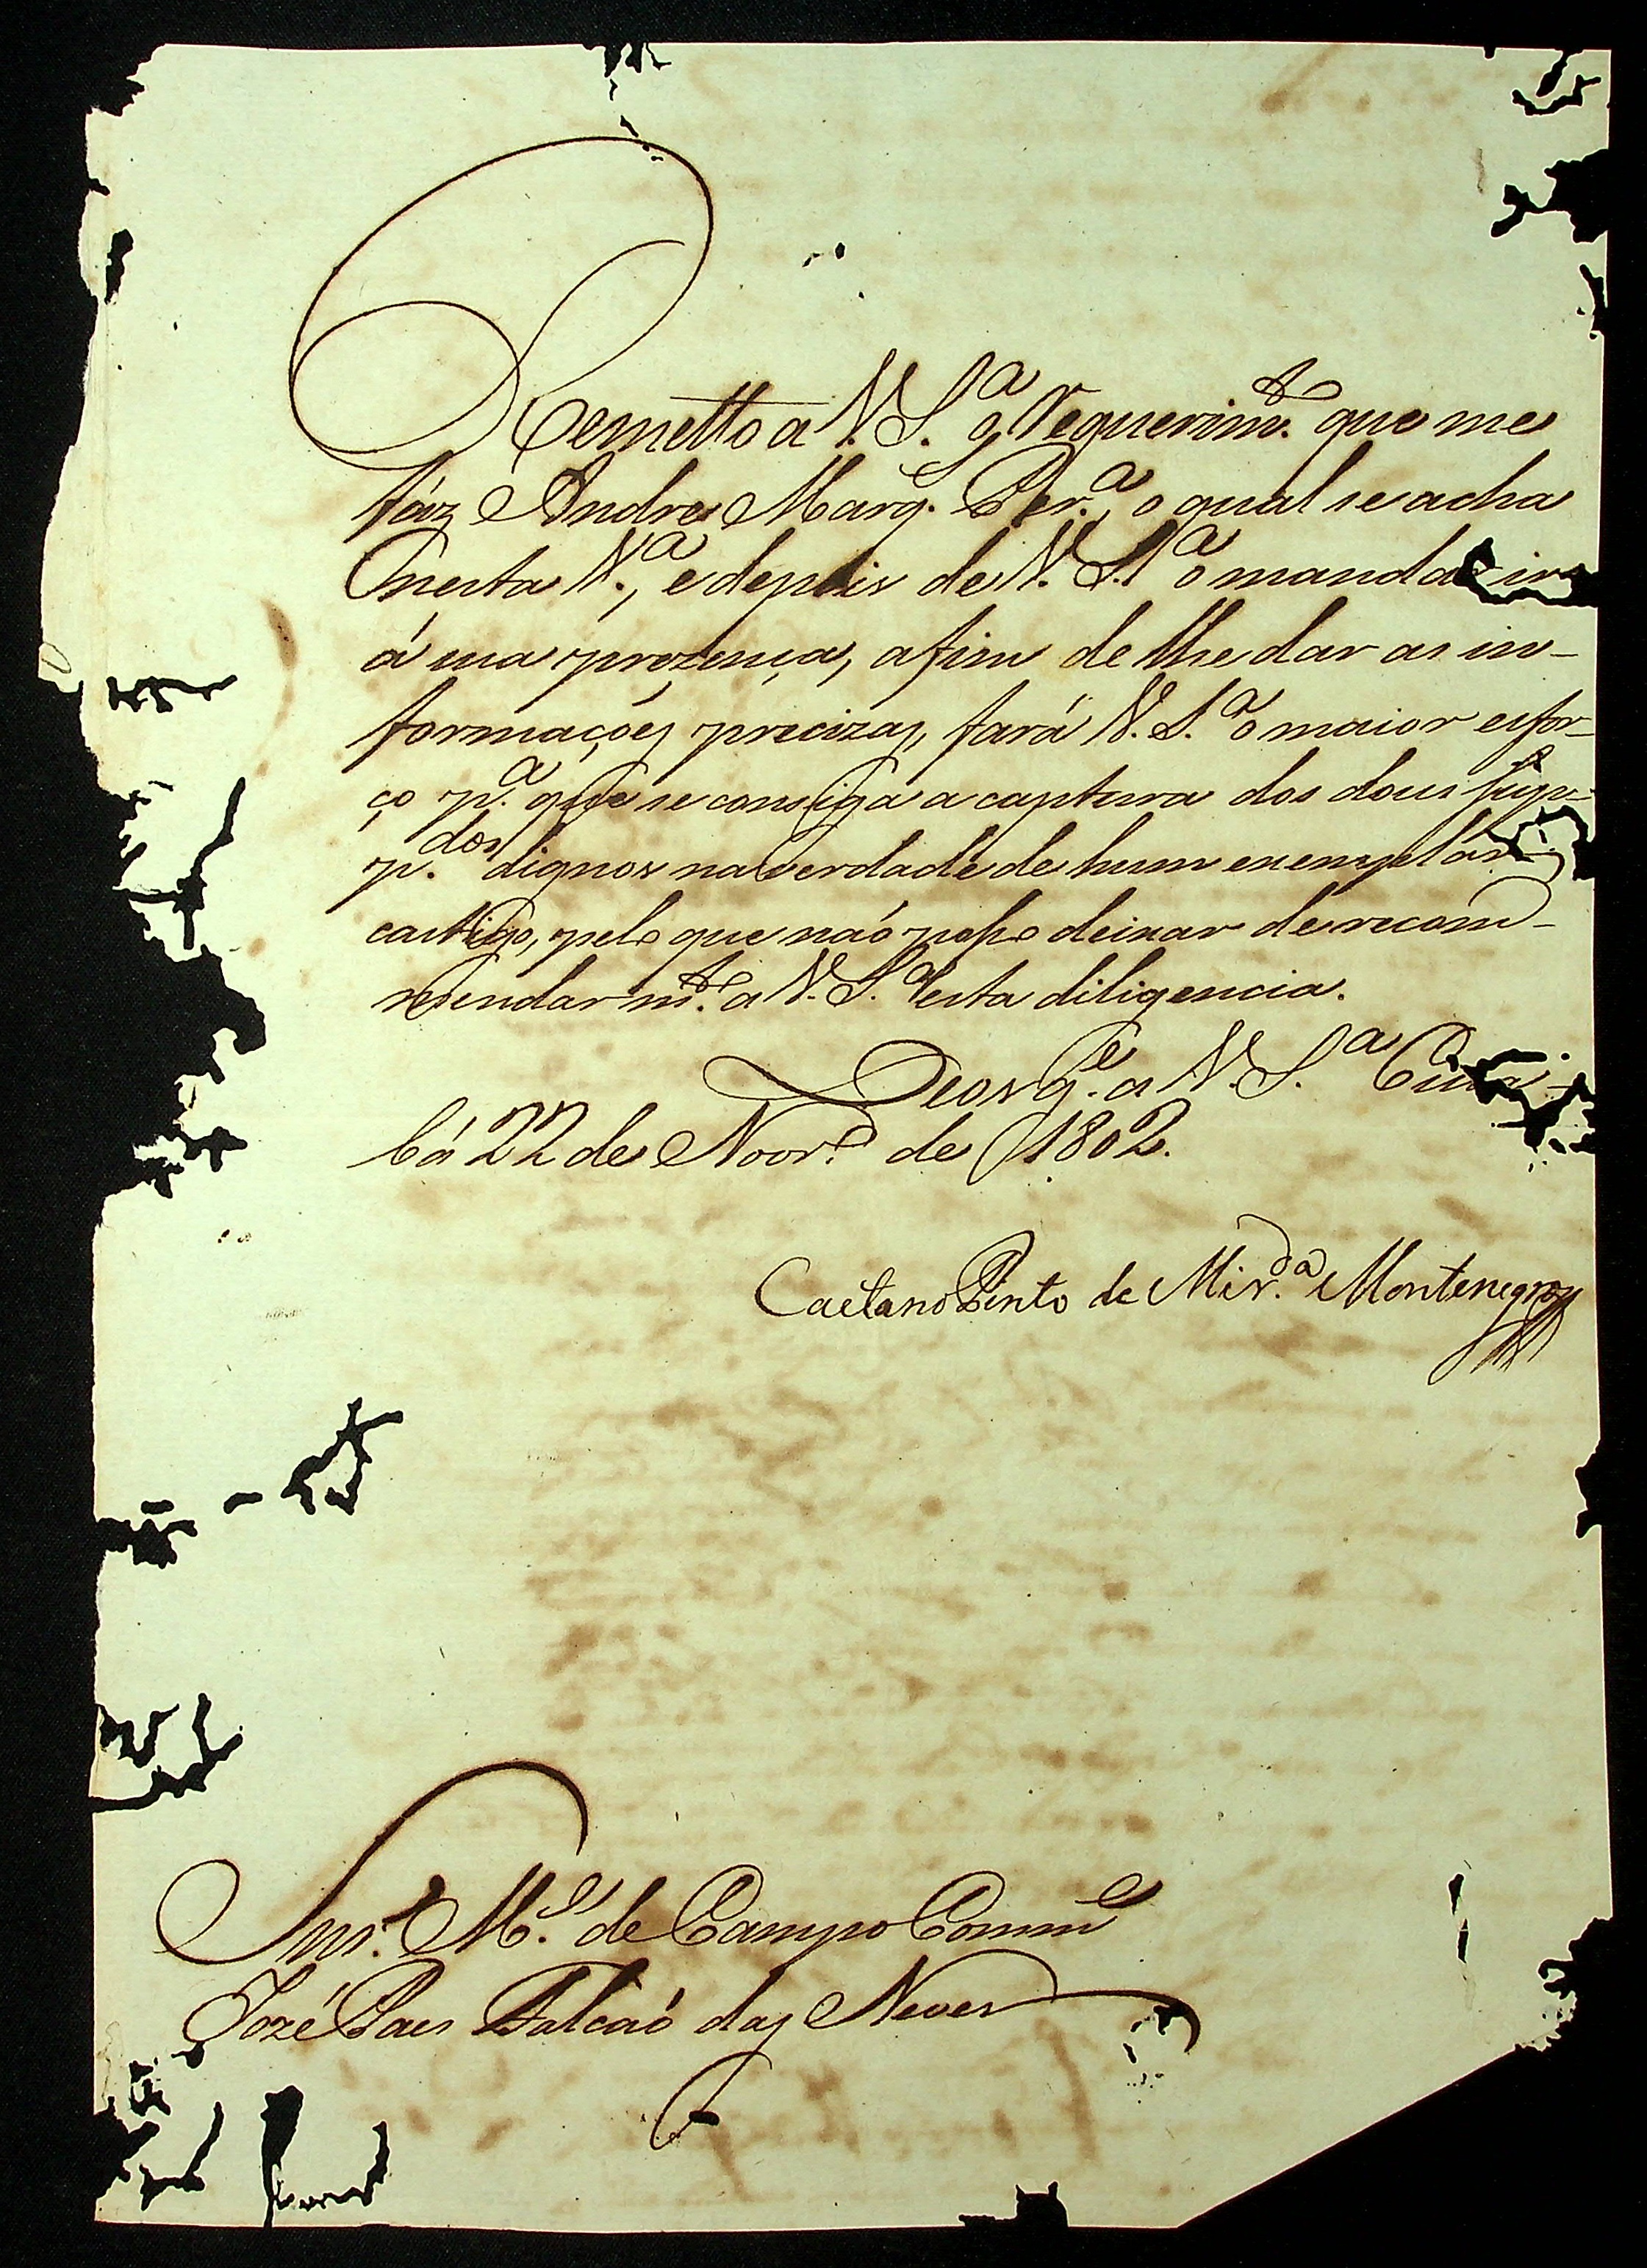 Remetto a V. S.ª o Requerim.to que me
fáz Andre Marq. Per.ª, o qual se acha
nesta V.ª, e depois de V. S.ª o mandar ir
á sua prezença, afim de lhe dar as in-
formações precizas, fará V. S.ª o maior esfor-
ço p.ª que se consiga a captura dos dous
p.dos dignos na verdade de hum exemplár
castigo, pelo que naó posso deixar de recom-
mendar m.to a V. S.ª esta diligencia.
Deos g.e a V. S.ª Cuia-
bá 22 de Novr.º de 1802.
Caetano Pinto de Mir.da Montenegro
Snr. M.e de Campo Comm.e
Jozé Paes Falcaó das Neves